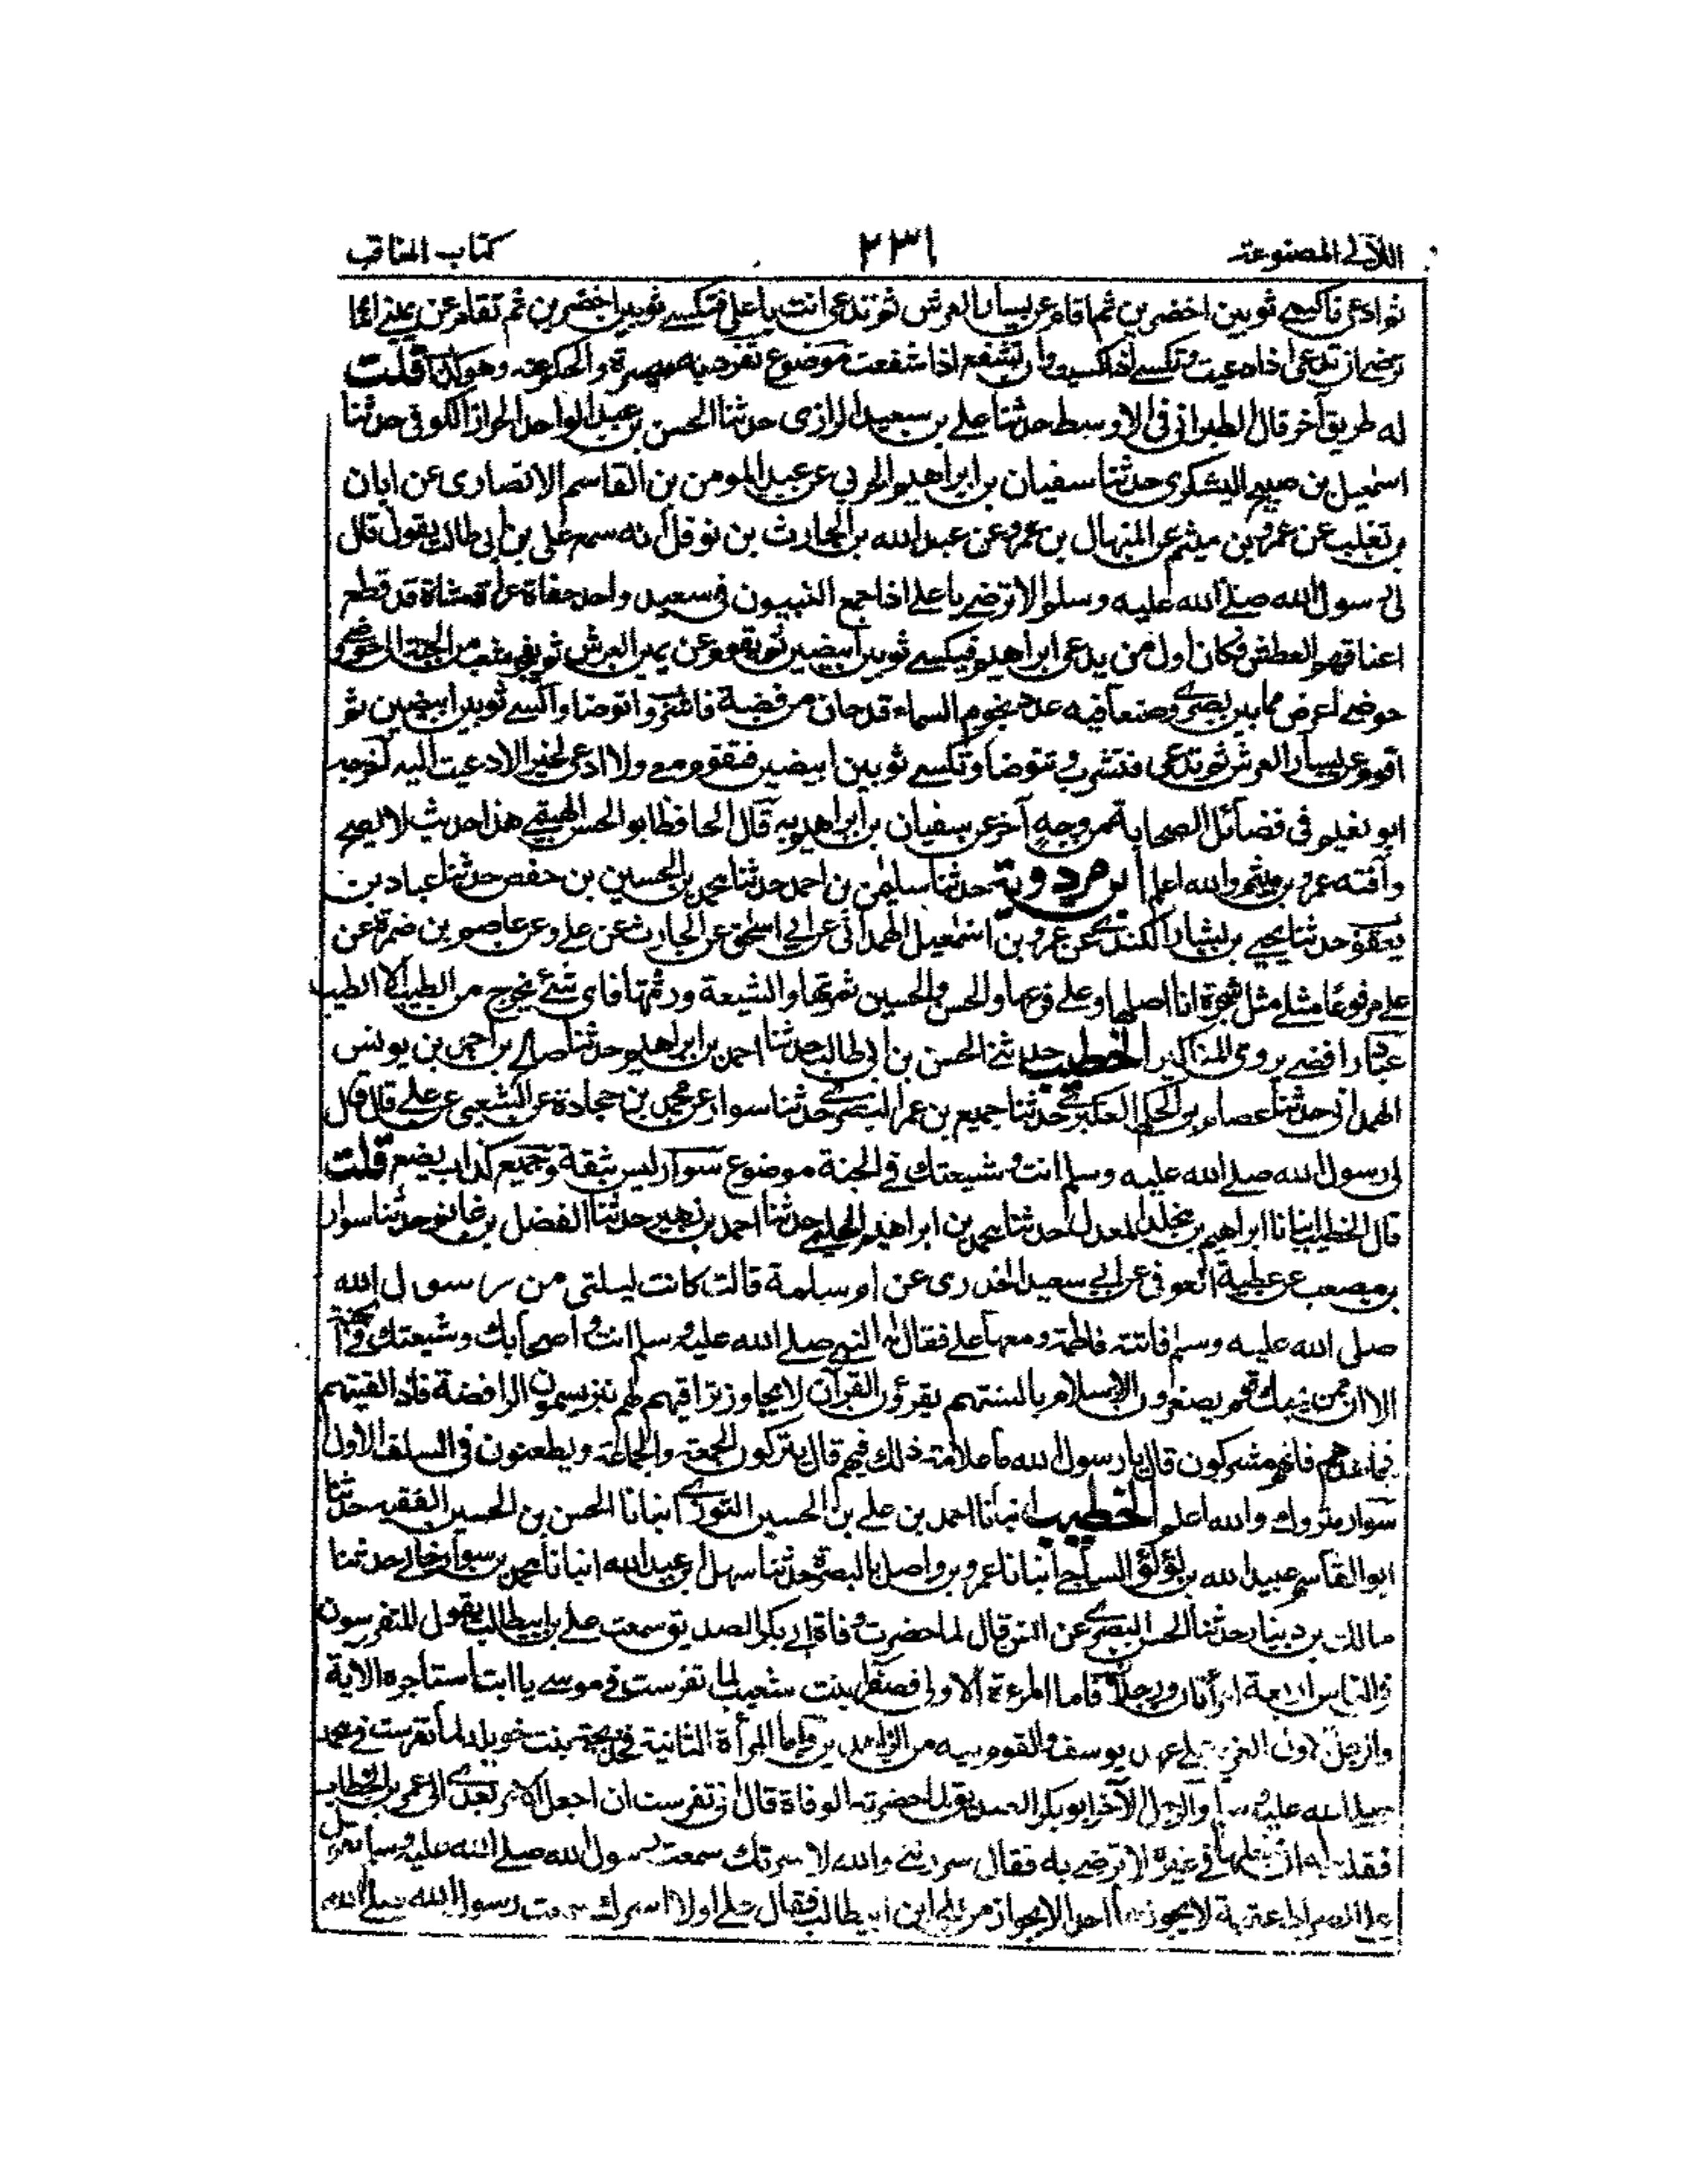 اللآلى المصنوعة ٢٣١ كتاب المناقب
ثم ادعى فاكسى ثوبين اخضرين ثم اقام عن يسار العرش ثم تدعى انت يا على فتكسى ثوبين اخضرين ثم تقام عن يمينى اما
ترضى ان تدعى اذا دعيت وتكسى اذا كسيت وان تشفع اذا شفعت موضوع تفرد به ميسرة والحكم عنه وهو كذاب قلت
له طريق آخر قال الطبرانى فى الاوسط حدثنا على بن سعيد الرازى حدثنا الحسن بن عبد الواحد الخزاز الكوفى حدثنا
اسمعيل بن صبيح اليشكرى حدثنا سفيان بن ابراهيم الحربى عن عبد المومن بن القاسم الانصارى عن ابان
بن تغلب عن عمرو بن ميثم عن المنهال بن عمرو عن عبد الله بن الحارث بن نوفل انه سمع على بن ابى طالب يقول قال
لى رسول الله صلى الله عليه وسلم الا ترضى يا على اذا جمع النبيون فى صعيد واحد حفاة عراة مشاة قد قطع
اعناقهم العطش فكان اول من يدعى ابراهيم فيكسى ثوبين ابيضين ثم يقوم عن يمين العرش ثم يفجر شعب من الجنة الى حوضى و
حوضى اعرض مما بين بصرى وصنعا فيه عدد نجوم السماء قدحان من فضة فاشرب واتوضا واكسى ثوبين ابيضين ثم
اقوم عن يسار العرش ثم تدعى فتشرب وتتوضا وتكسى ثوبين ابيضين فتقوم معى ولا ادعى لخير الا دعيت اليه اخرجه
ابو نعيم فى فضائل الصحابة من وجه آخر عن سفيان بن ابراهيم به قال الحافظ ابو الحسن الهيثمى هذا حديث لا يصح
وآفته عمرو بن ميثم والله اعلم ابن مردوية حدثنا سليمن بن احمد حدثنا محمد بن الحسين بن حفص حدثنا عباد بن
يعقوب حدثنا يحيى بن بشار الكندى عن عمرو بن اسمعيل الهمدانى عن ابى اسحق عن الحارث عن على وعن عاصم بن ضمرة عن
على مرفوعا مثلى مثل شجرة انا اصلها وعلى فرعها والحسن والحسين ثمرتها والشيعة ورقها فاى شئ يخرج من الطيب الا الطيب
عباد رافضى يروى المناكير الخطيب حدثنا الحسن بن ابى طالب حدثنا احمد بن ابراهيم حدثنا صالح بن احمد بن يونس
الهمدانى حدثنا عصام بن الحكم العكبرى حدثنا جميع بن عمر البصرى حدثنا سوار عن محمد بن حجادة عن الشعبى عن على قال قال
لى رسول الله صلى الله عليه وسلم انت وشيعتك فى الجنة موضوع سوار ليس بثقة وجميع كذاب يضع قلت
قال الخطيب انبانا ابراهيم بن مخلد المعدل حدثنا محمد بن ابراهيم الحليمى حدثنا احمد بن زهير حدثنا الفضل بن غانم حدثنا سوار
بن مصعب عن عطية العوفى عن ابى سعيد الخدرى عن ام سلمة قالت كانت ليلتى من رسول الله
صلى الله عليه وسلم فاتته فاطمة ومعها على فقال له النبى صلى الله عليه وسلم انت واصحابك وشيعتك فى الجنة
الا ان ممن يحبك قوم يصغرون الاسلام بالسنتهم يقرؤن القرآن لا يجاوز تراقيهم لهم نبز يسمون الرافضة فاذا لقيتهم
فجاهدهم فانهم مشركون قال يا رسول الله ما علامة ذلك فيهم قال يتركون الجمعة والجماعة ويطعنون فى السلف الاول
سوار متروك والله اعلم الخطيب انبانا احمد بن على بن الحسين التوزى انبانا الحسن بن الحسين الفقيه حدثنا
ابو القاسم عبيد الله بن لؤلؤ الساجى انبانا عمرو بن واصل بالبصرة حدثنا سهل بن عبد الله انبانا محمد بن سوار خالى حدثنا
مالك بن دينار حدثنا الحسن البصرى عن انس قال لما حضرت وفاة ابى بكر الصديق سمعت على بن ابيطالب يقول المتفرسون
فى الناس اربعة امرأتان ورجلان فاما المرءة الاولى فصفرا بنت شعيب لما تفرست فى موسى يا ابت استاجره الاية
والرجل الاول العزيز على عهد يوسف والقوم فيه من الزاهدين واما المرأة الثانية فخديجة بنت خويلد لما تفرست فى محمد
صلى الله عليه وسلم والرجل الآخر ابو بكر الصديق لما حضرته الوفاة قال انى تفرست ان اجعل الامر بعدى الى عمر بن الخطاب
فقلت له ان تجعلها فى غيره لا نرضى به فقال سررتنى والله لاسرنك سمعت رسول الله صلى الله عليه وسلم يقول
على الصراط عقبة لا يجوزها احد الا بجواز من على ابن ابيطالب فقال على اولا اسرك سمعت رسول الله صلى الله